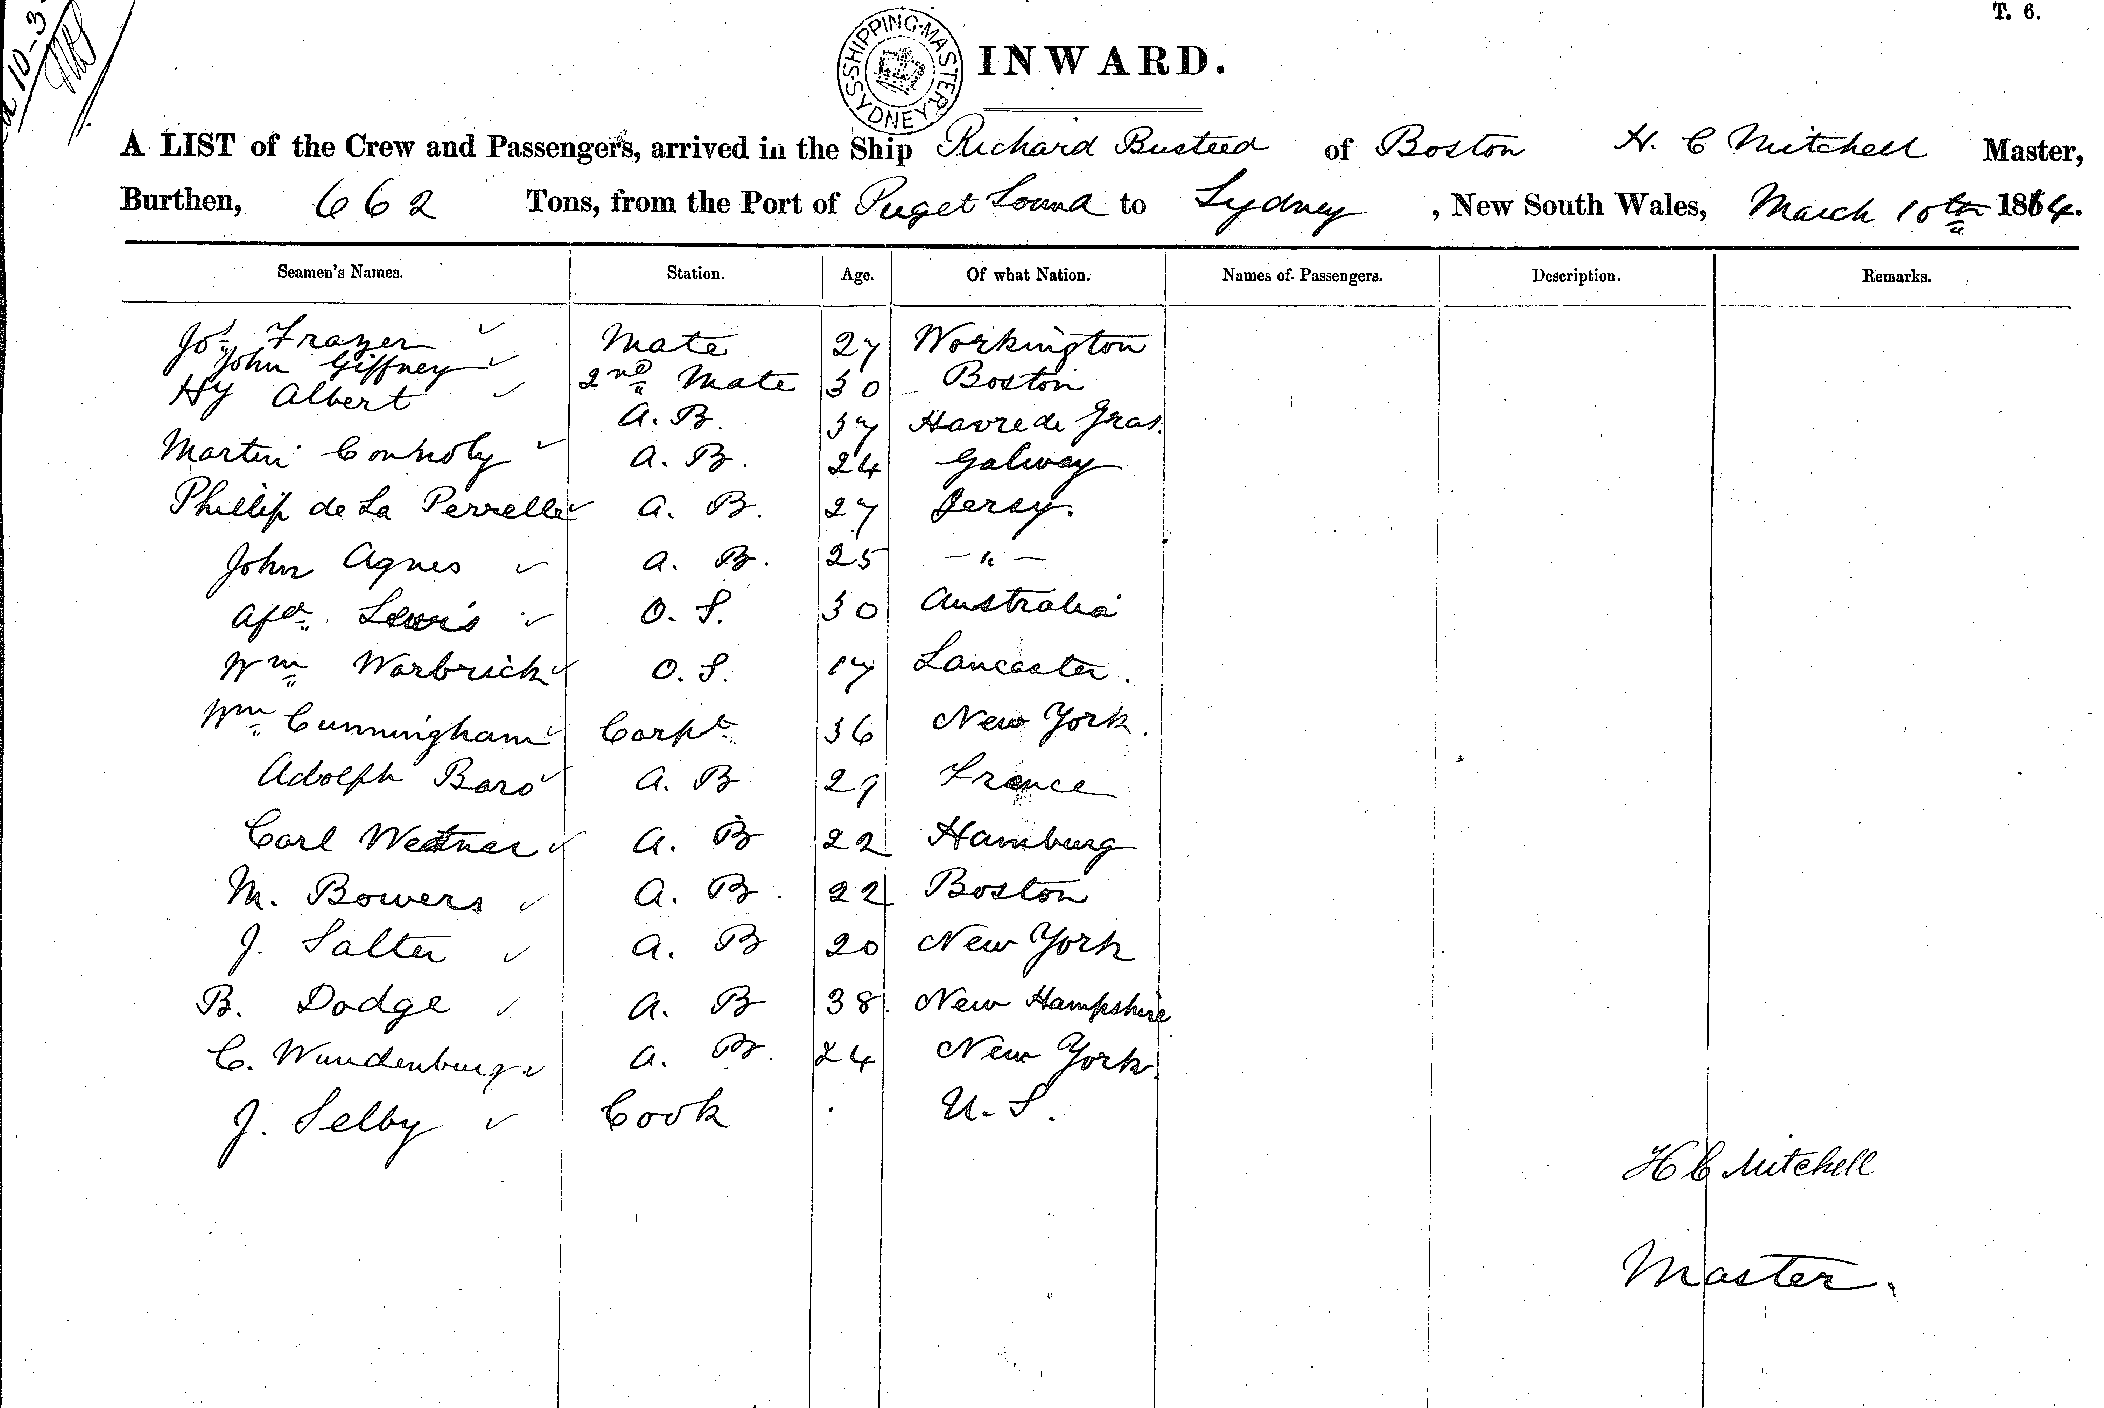 T. 6.
SHIPPING-MASTER SYDNEY
INWARD.
A LIST of the Crew and Passengers, arrived in the Ship Richard Busteed of Boston H. C Mitchell Master,
Burthen, 662 Tons, from the Port of Puget Sound to Sydney, New South Wales, March 10th 1864.
Seamen's Names. Station. Age. Of what Nation. Names of Passengers. Description. Remarks.
Jos Frazer Mate 27 Workington
John Giffney 2nd Mate 30 Boston
Hy Albert A. B. 37 Havre de Gras.
Martin Connoly A. B. 24 Galway
Phillip de La Perrelle A. B. 27 Jersy.
John Agnes A. B. 25 — " —
Lewis O. S. 30 Australia
Wm Warbrick O. S. 17 Lancaster.
Wm Cunningham Carpt 36 New York.
Adolph Baro A. B 29 France
Carl A. B 22 Hamburg
M. Bowers A. B. 22 Boston
J. Salter A. B 20 New York
B. Dodge A. B 38 New Hampshire
C. Wundenburg A. B. 24 New York.
J. Selby Cook U. S.
H C Mitchell
Master.